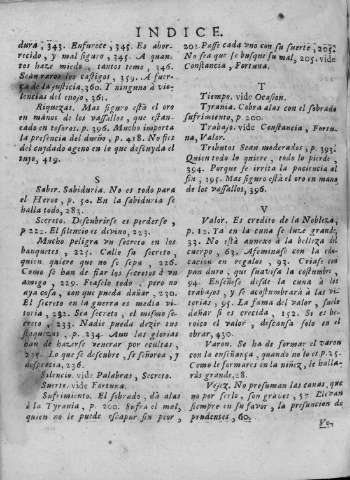 INDICE.
dura, 343. Enfurece, 345. Es abor-
recido, y mal siguro, 345. A quan-
tos haze miedo, tantos teme, 346.
Sean raros los castigos, 359. A fuer-
ça de la justicia, 360. Y ninguno à vio-
lencias del enojo, 361.
Riquezas. Mas siguro està el oro
en manos de los vassallos, que estan-
cado en tesoros. p. 396. Mucho importa
la presencia del dueño, p. 418. No fies
del cuydado ageno en lo que
tuyo, 419.
S
Saber. Sabiduria. No es todo para
el Heroe, p. 50. En la sabiduria se
halla todo, 283.
Secreto. Descubrirse es perderse,
p 222. El silencio es divino, 223.
Mucho peligra un secreto en los
banquetes, 225. Calle su secreto,
quien quiere que no se sepa, 226.
Como se han de fiar los secretos à un
amigo, 229. Fiaselo todo, pero no
aya cosa, con que pueda dañar, 230.
El secreto en la guerra es media vi-
toria, 232. Sea secreto, el mismo se-
creto, 233. Nadie pueda dezir sus
flaquezas, p. 234. Aun las glorias
han de hazerse venerar por ocultas,
235. Lo que se descubre, se señorea, y
desprecia, 236.
Silencio. vide Palabras, Secreto.
Suerte. vide Fortuna.
Sufrimiento. El sobrado, dà alas
à la Tyrania, p. 200. Sufra el mal,
quien no le puede escapar sin peor,
203. Passe cada uno con su suerte, 205.
No sea que se busque su mal, 205. vide
Constancia, Fortuna.
T
Tiempo. vide Ocasion.
Tyrania. Cobra alas con el sobrado
sufrimiento, p. 200.
Trabajo. vide Constancia, Fortu-
na, Valor.
Tributos Sean moderados, p. 393.
Quien todo lo quiere, todo lo pierde,
394. Porque se irrita la paciencia al
fin, 395. Mas siguro està el oro en mano
de los vassallos, 396.
V
Valor. Es credito de la Nobleza,
p. 12. Ya en la cuna se luze grande,
33. No està annexo à la belleza del
cuerpo, 63. Afeminase con la edu-
cacion en regalos, 93. Criase con
pan duro, que suaviza la costumbre,
94. Enseñese desde la cuna à los
trabajos, y se acostumbrarà à las vi-
torias, 95. La fama del valor, suele
dañar si es crecida, 152. Si es be-
roico el valor, descansa solo en el
obrar, 430.
Varon. Se ha de formar el varon
con la enseñança, quando no lo es p. 25.
Como te formares en la niñez, te halla-
ràs grande, 28.
Vejez. No presuman las canas, que
no por serlo, son graves, 57. Llevan
siempre en su favor, la presuncion de
prudentes, 60.
Ve-